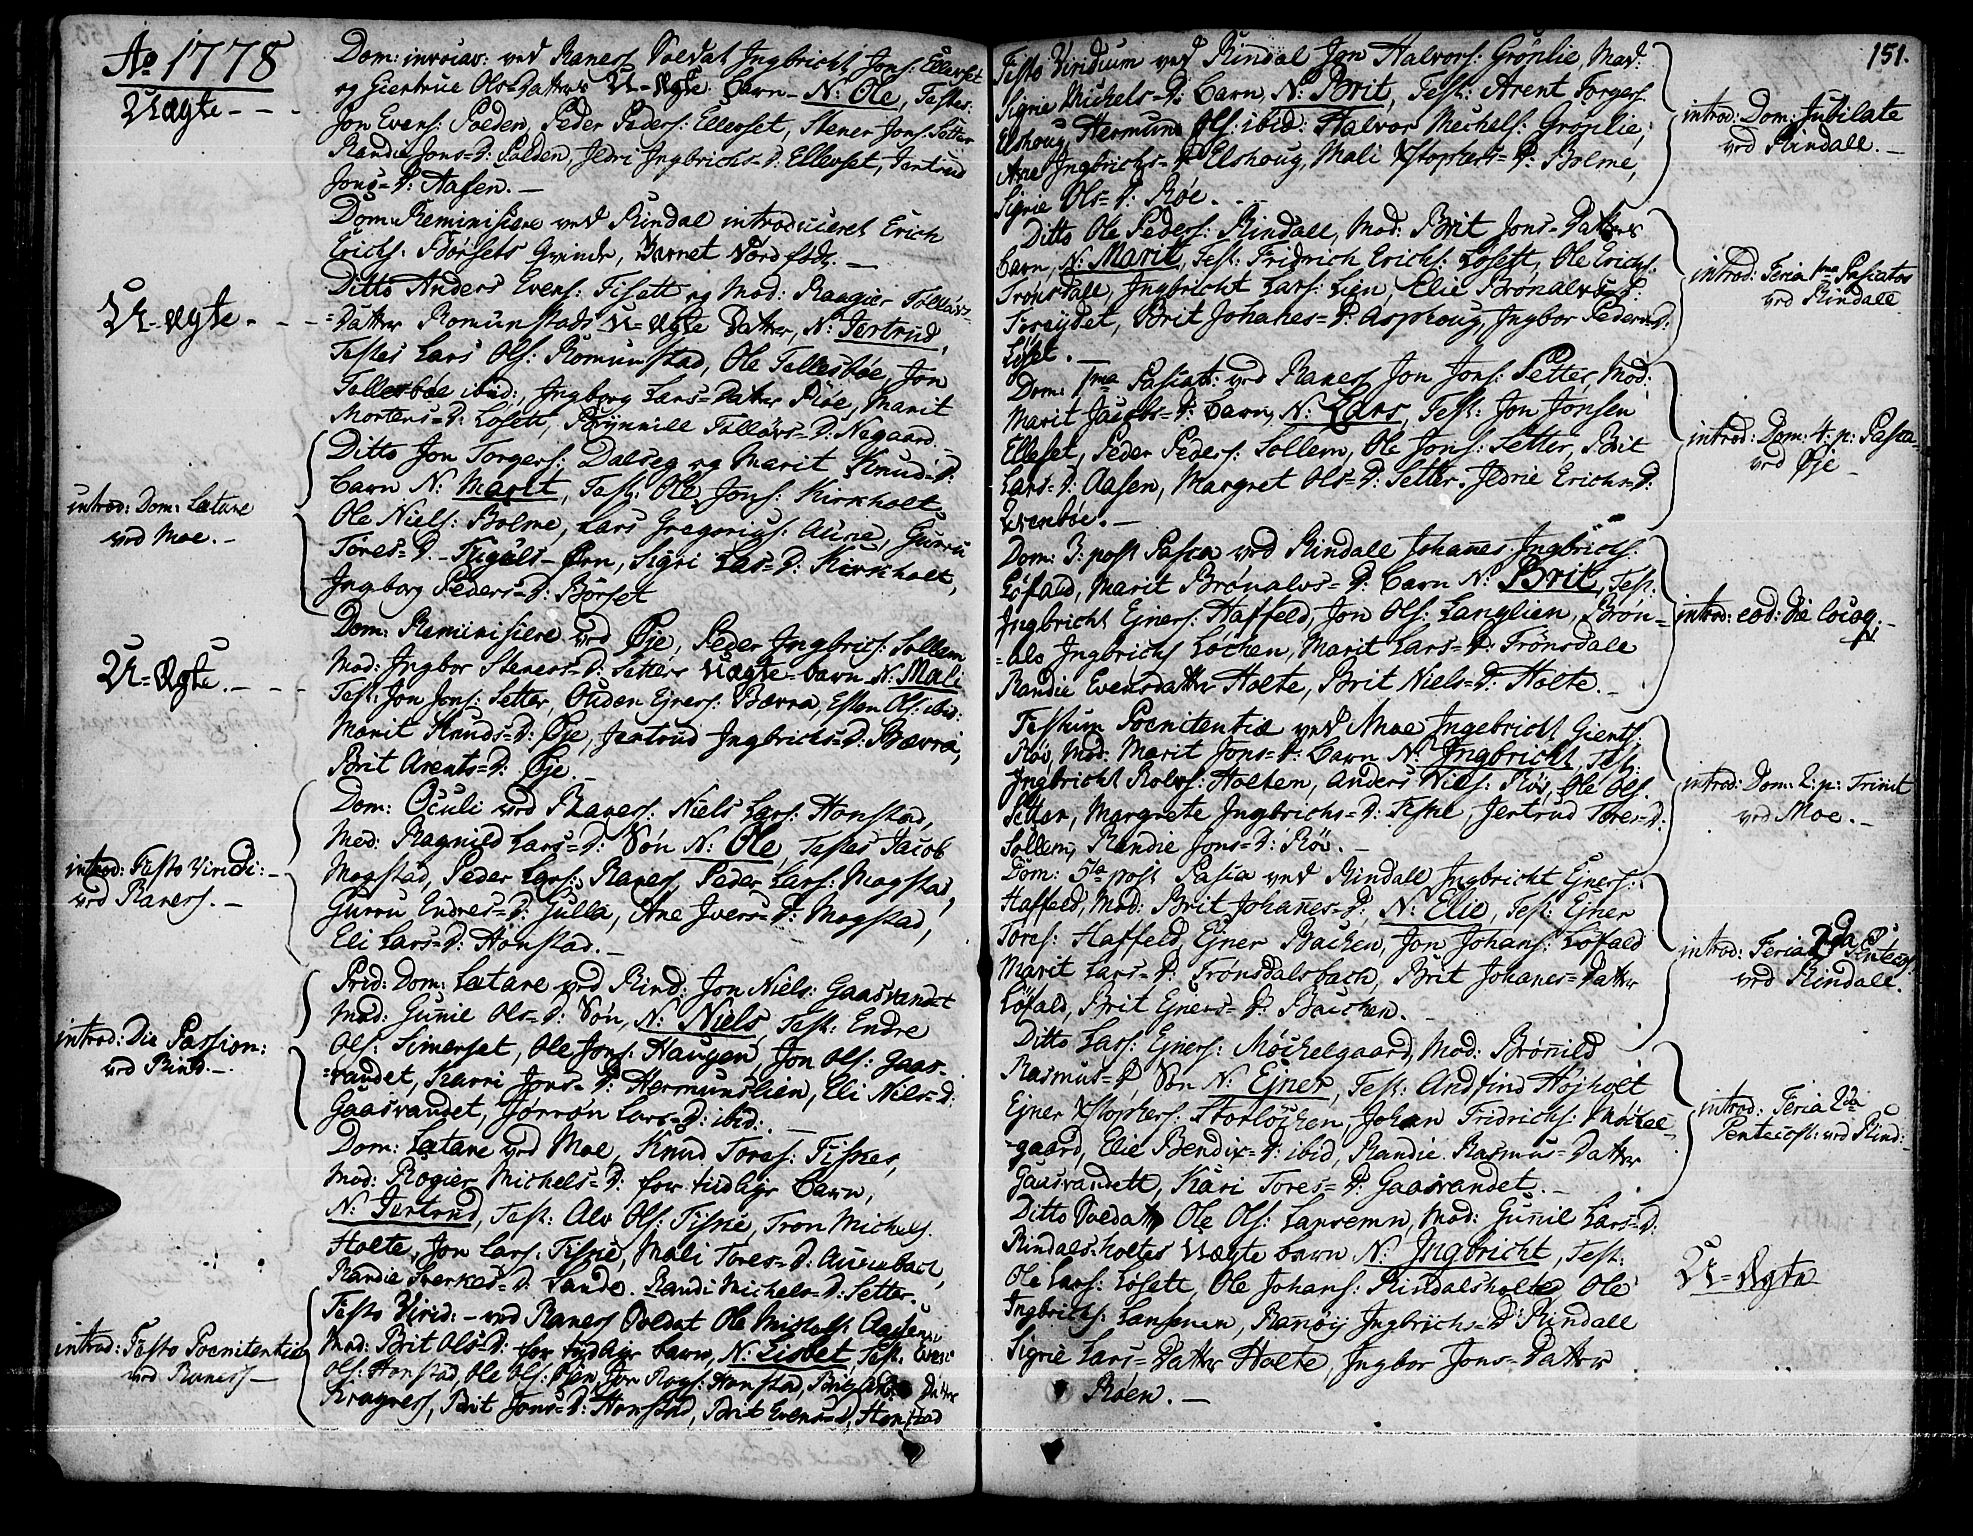 Ao 1778
Uægte - - -
Dom: invocav: ved Raness Soldat Ingbricht Jons: Ellevset
og Giertrue Ols-Datters U-Ægte Barn - N: Ole, Testes:
Jon Evens: Polden, Peder Peders: Ellerset, Stener Jons: Setter
Randie Jons=D: Polden, Jldri Ingbrichs=D: Ellevset, Jertrud
Jons=D: Aasen. -
Dom: Reminisiere ved Rindal introduceret Erich
Erichs: Børsets Qvinde, Barnet Død født. -
U-Ægte. - - -
Ditto Anders Evens: Fisatt og Mod: Raagier Tolløvs-
=Datter Romunstads U-Ægte Datter, N: Jertrud,
Testes Lars Ols: Romunstad, Ole Tallesbøe, Jon
Tallesbøe ibid:, Ingborg Lars=Datter Røe, Marit
Mortens=D: Losett, Brynnild Talløvs=D: Negaard.
introd: Dom: Lætare
ved Moe. -
Ditto Jon Torgers: Dalseg og Marit Knud=D:
Barn N: Marit, Test: Ole Jons: Kirkholt
Ole Niels: Bolme, Lars Gregorius: Aune, Gurru
Tores=D: Fugels-Øen, Sigri Las=D: Kirkholt,
Ingborg Peders=D: Børset
U-Ægte. - - -
Dom: Reminisiere ved Øje, Peder Ingbrics: Sollem
Mod: Ingbor Steners=D: Setters Uægte-barn N: Mali
Test: Jon Jons: Setter, Ouden Ejners: Bævra, Esten Ols: ibid:
Marit Knuds=D: Øje, Jertrud Ingbrichs=D: Bævra,
Brit Arents=D: Øje. -
introd: Festo Viridi: -
ved Raness. -
Dom: Oculi ved Raness: Niels Lars: Honstad,
Mod: Ragnild Lars=D: Søn N: Ole, Testes Jacob
Mogstad, Peder Lars: Raness, Peder Lars: Mogstad,
Gurru Endres=D: Gulla, Ane Jvers=D: Mogstad,
Eli Lars=D: Honstad. -
introd: Die Passion:
ved Rind. -
Prid: Dom: Lætare ved Rind: Jon Niels: Gaasvandet
Mod: Gunnil Ols=D: Søn, N: Niels, Test: Endre
Ols: Simerset, Ole Jons: Haugen, Jon Ols: Gaas-
=vandet, Karri Jons=D: Hermunslien, Eli Niels=D:
Gaasvandet, Jørrøn Lars=D: ibid:. -
Dom: Lætare ved Moe, Knud Tores: Fiskes,
Mod: Rogier Michels=D: for tidlige Barn,
N: Jertrud, Test: Alv Ols: Fiske, Tron Michels.
Holte, Jon Lars: Fiske, Mali Tores=D: Aunebach,
Randie Sverkes=D: Sande. Randi Michels=D: Setter.
introd: Festo Poenitentiæ
ved Raness -
Festo Virid: - ved Raness Soldat Ole
Mod: Brit Ols=D: for tydlige barn, N: Lisbet Test. Even
Ols: Honstad, Ole Ols: Øien, Jon Rogs: Honstad, Brit Datter
Kragness, Brit Jons=D: Honstad, Brit Evens=D, Honstad
151.
Festo Viridium ved Rindal Jon Halvors: Grønlie, Mod:
Sigrie Michels=D: Barn, N: Brit, Test: Arent Torgers
Elshoug, Hermund Ols: ibid: Halvor Mechels: Grønlie,
Ane Ingbrichs=D: Elshoug, Mali Xstophers=D: Bolme,
Sigrie Ols=D: Røe. -
introd: Dom: Jubilate
ved Rindale. -
Ditto Ole Peders: Rindale, Mod: Brit Jons=Datters
Barn, N: Marit, Test: Fridrich Erichs: Losett, Ole Erichs:
Trønsdale, Ingbricht Lars: Lien, Elie Brønalvs=D:
Foreydet, Brit Johanes=D: Asphoug, Ingbor Peders=D:
Løset. -
introd: Feria 1ma Pascatos
ved Rindale
Dom: 1ma Pascat: ved Raness Jon Jons: Setter, Mod:
Marit Jacobs=D: Barn, N: Lars, Test: Jon Jonsen
Elleset, Peder Peders: Sollem, Ole Jons: Setter, Brit
Lars=D: Aasen, Margret Ols=D: Setter. Jldrie Erichs=D:
introd: Dom: 4: p: Pasca
ved Øje -
Dom: 3: post Pasca ved Rindale Johanes Ingbrichs:
Løfald, Marit Brønalvs=D: Barn N: Brit, Test:
Ingbricht Ejners: Haffeld, Jon Ols: Langlien, Brøn-
=als Ingbrichs Løchen, Marit Lars=D: Trønsdale
Randie Evensdatter Holte, Brit Niels=D: Holte. -
introd: eod: die locoq. -
Festum Poenitentiæ ved Moe Ingebricht Gients:
Røe, Mod: Marit Jons=D: Barn N: Ingbricht, Test:
Ingbricht Rolvs: Holten, Anders Niels: Røe, Ole Ols.
Setter, Margrete Ingbrichs=D: Fiske, Jertrud Tores=D:
Sollem, Randie Jons=D: Røe. -
introd: Dom: 2: p: Trinit
ved Moe. -
Dom: 5ta post Pasca ved Rindale Ingbricht Ejners:
Haffeld, Mod: Brit Johannes=D: N: Elie, Test: Ejner
Tores: Haffeld, Ejner Bachen, Jon Johans: Løfald
Marit Lars=D: Trønsdalsbach, Brit Johanes=Datter
Løfald, Brit Ejners=D: Bachen. -
introd: Feria 2da Pentecos:
ved Rindale.
Ditto Lars: Ejners: Møchelgaard, Mod: Brønild
Rasmus=D, Søn N: Ejner, Test: Andfind Højholt
Ejner Xstophers: Storløchen, Johan Fridrichs: Møchel-
-gaard, Elie Bendix=D: ibid, Randie Rasmus=Datter
Gaasvandett, Kari Tores=D: Gaasvandet. -
introd: Feria 2da
Pentecost: ved Rind:
Ditto Soldat Ole Ols: Lansemn, Mod: Gunnil Lars=D:
Rindals-holtes Uægte barn N: Ingbricht, Test:
Ole Lars: Losett, Ole Johans: Rindalsholte, Ole
Ingbrichs: Lansemn, Rannøy Ingbrichs=D: Rindale
Sigrie Lars=Datter Holte, Ingbor Jons=Datter
Røen. -
U-Ægte